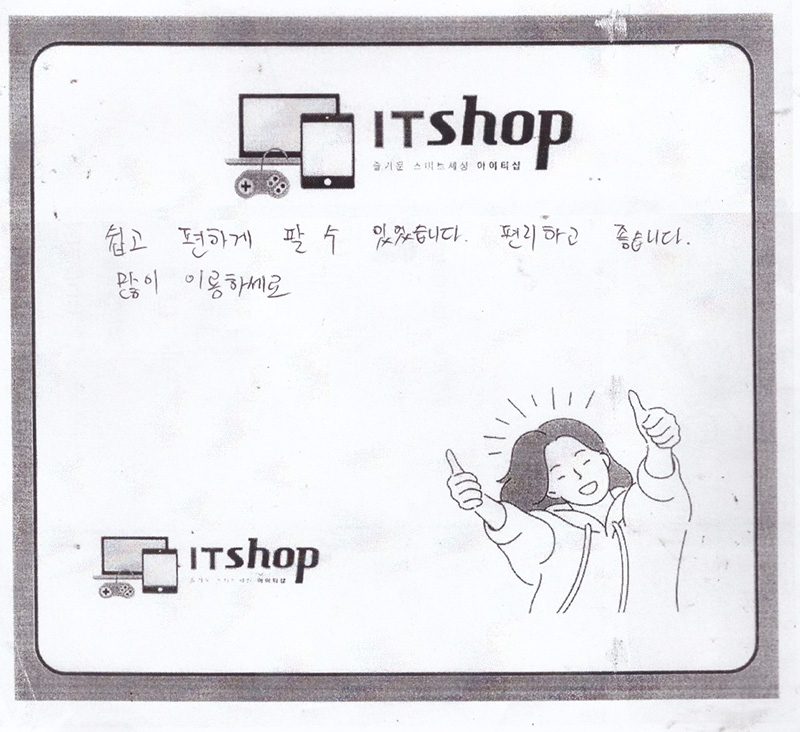 ITshop
즐거운 스마트세상 아이티샵
쉽고 편하게 팔 수 있었습니다. 편리하고 좋습니다.
많이 이용하세요
ITshop
즐거운 스마트세상 아이티샵